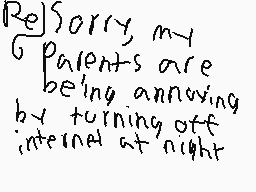 Re Sorry, my
Parents are
being annoying
by turning off
internet at night